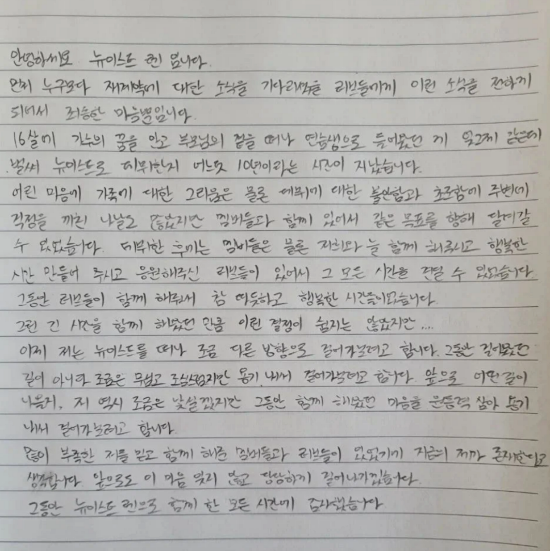 안녕하세요 뉴이스트 렌 입니다.
먼저 누구보다 재계약에 대한 소식을 기다리셨을 러브들에게 이런 소식을 전하게
되어서 죄송한 마음뿐입니다.
16살에 가수의 꿈을 안고 부모님의 집을 떠나 연습생으로 들어왔던 게 엊그제 같은데
벌써 뉴이스트로 데뷔한지 어느듯 10년이라는 시간이 지났습니다.
어린 마음에 가족에 대한 그리움은 물론 데뷔에 대한 불안함과 초조함에 주변에
걱정을 끼친 나날도 많았지만 멤버들과 함께 있어서 같은 목표를 향해 달려갈
수 있었습니다. 데뷔한 후에는 멤버들은 물론 저희와 늘 함께 해주시고 행복한
시간 만들어 주시고 응원해주신 러브들이 있어서 그 모든 시간을 견딜 수 있었습니다
그동안 러브들이 함께 해줘서 참 따듯하고 행복한 시간들이었습니다.
그런 긴 시간을 함께 해왔던 만큼 이런 결정이 쉽지는 않았지만 ...
이제 저는 뉴이스트를 떠나 조금 다른 방향으로 걸어가보려고 합니다. 그동안 걸어왔던
길이 아니라 조금은 무섭고 조심스럽지만 용기 내서 걸어가보려고 합니다 앞으로 어떤 길이
나올지, 저 역시 조금은 낯설겠지만 그동안 함께 해왔던 마음을 원동력 삼아 용기
내서 걸어가보려고 합니다.
많이 부족한 저를 믿고 함께 해준 멤버들과 러브들이 있었기에 지금의 제가 존재한다고
생각합니다 앞으로도 이 마음 잊지 않고 당당하게 걸어나가겠습니다.
그동안 뉴이스트 렌으로 함께 한 모든 시간에 감사했습니다